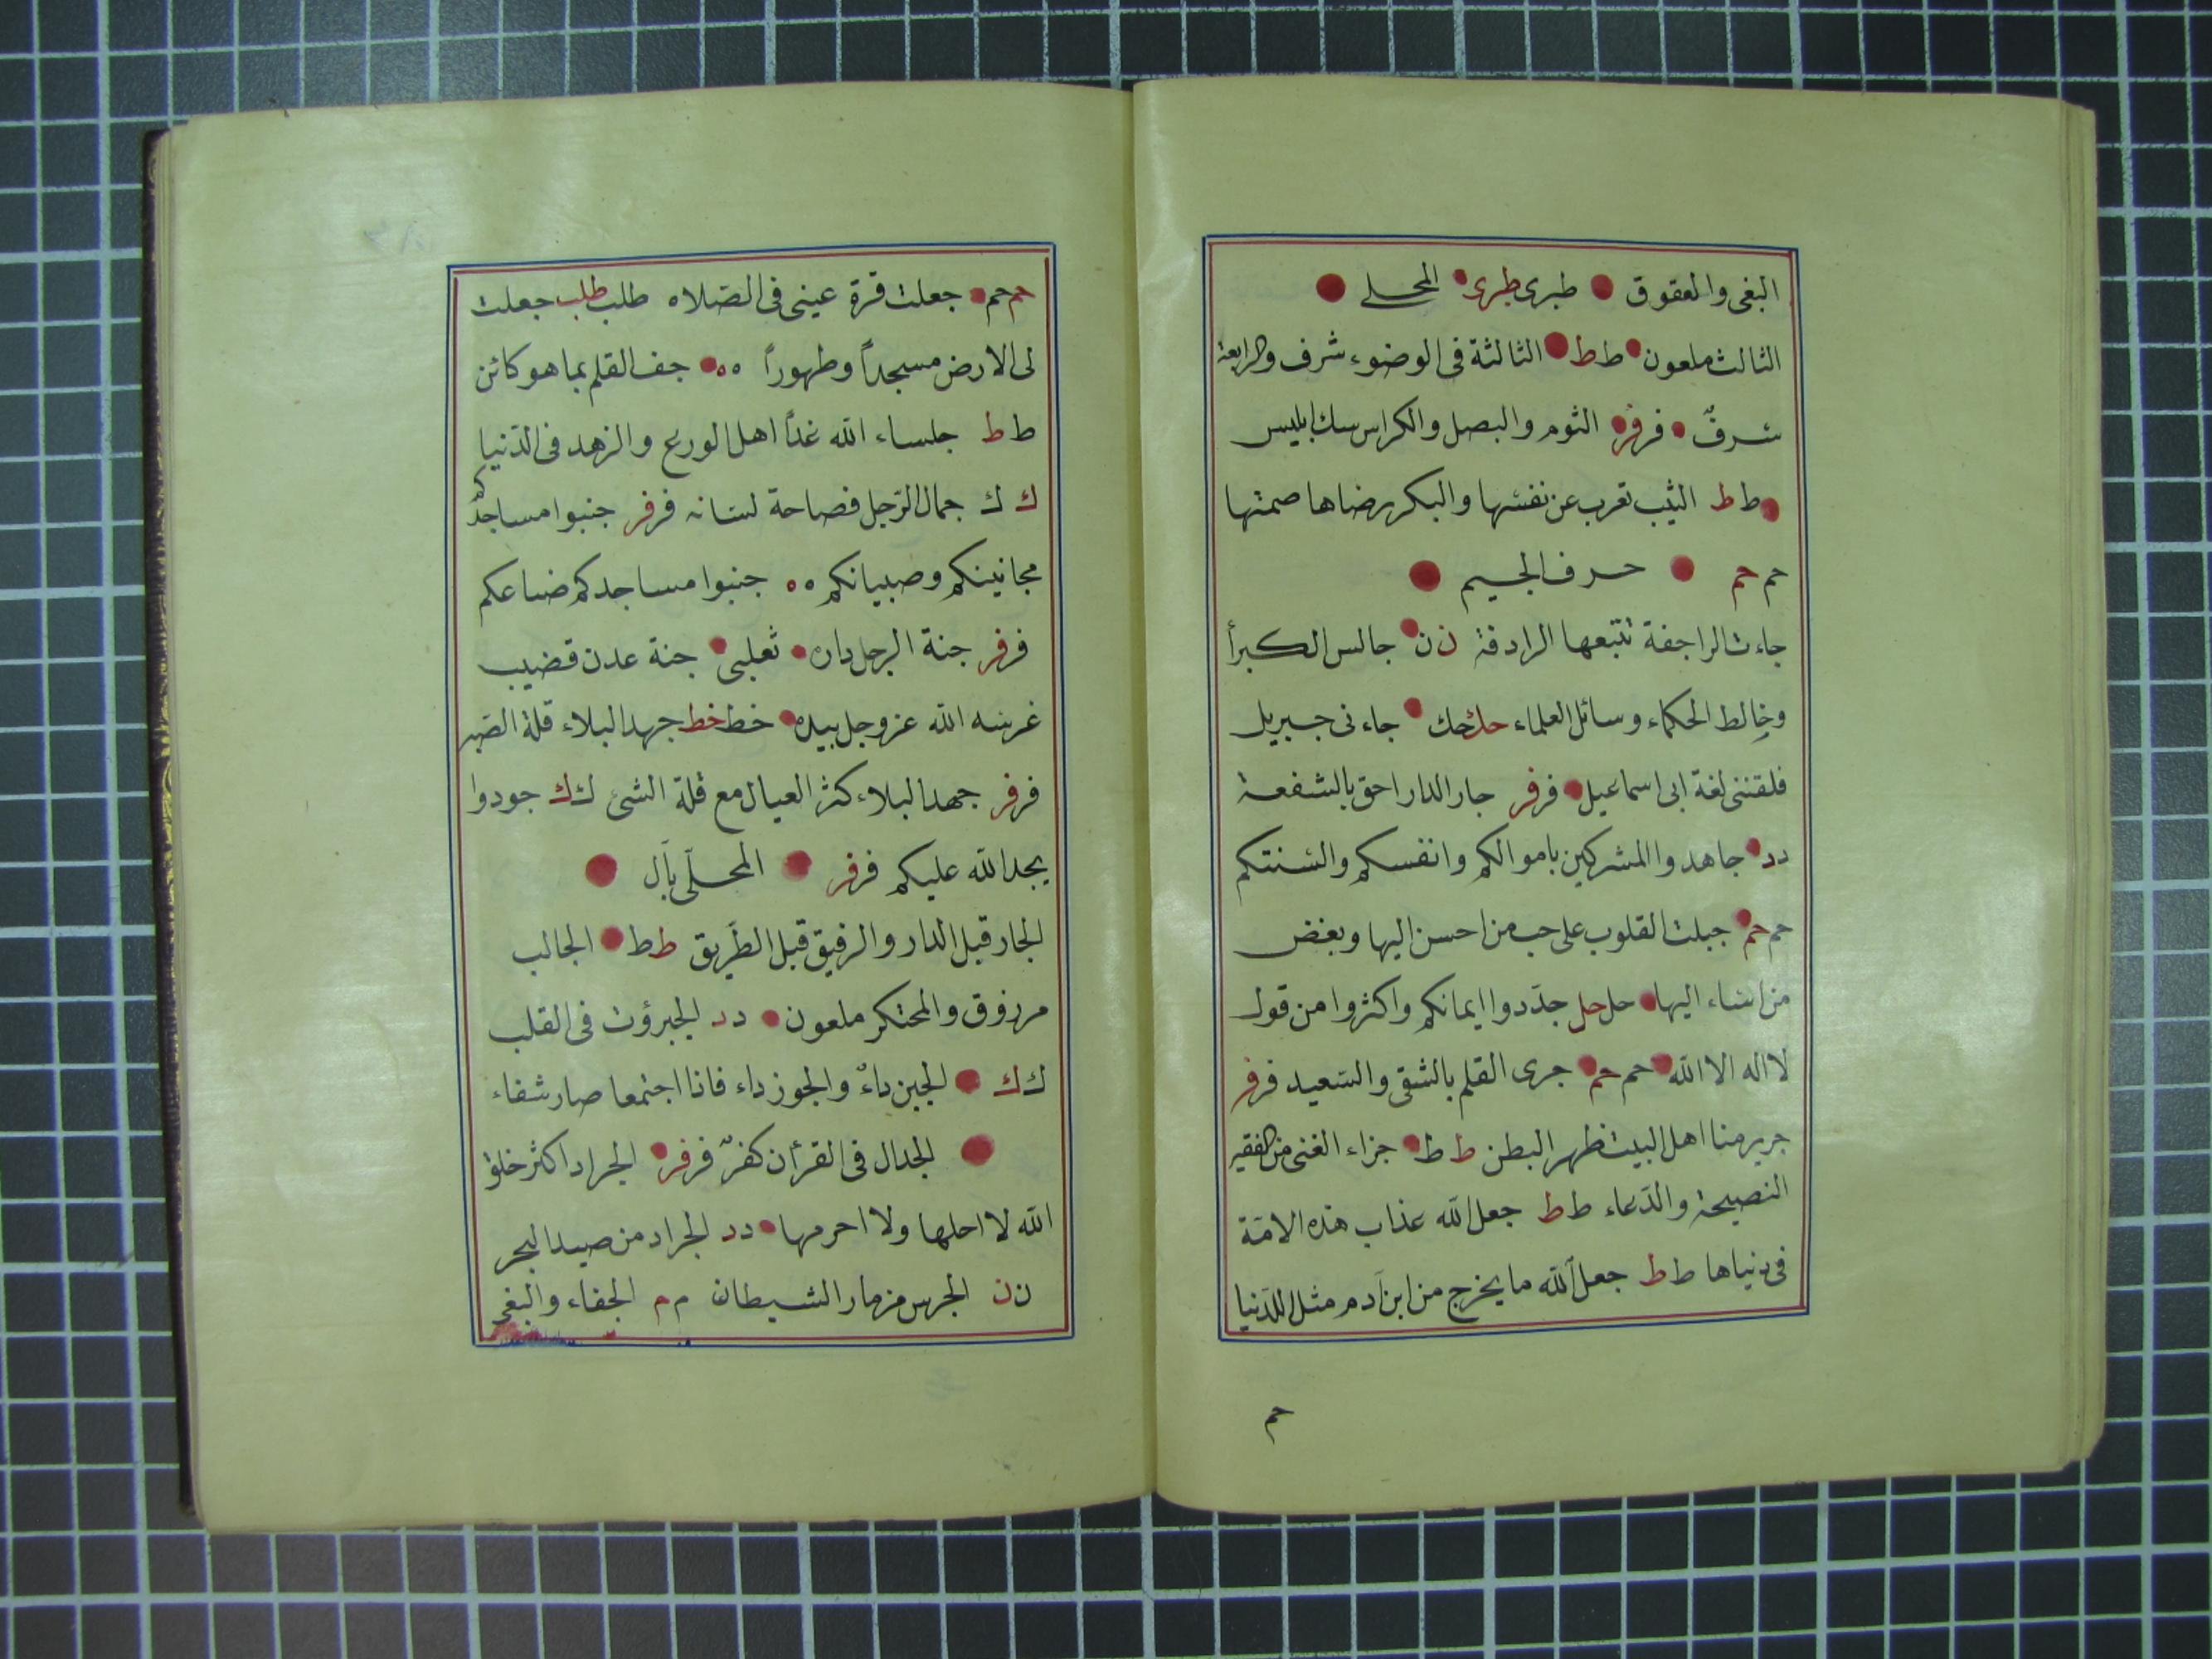 البغى والعقوق طبرى طبرى المحلى
الثالث ملعون ط ط الثالثة فى الوضوء شرف والرابعة
سرفٌ فر فر الثوم والبصل والكراس سك ابليس
ط ط الثيب تعرب عن نفسها والبكر رضاها صمتها
حم حم حرف الجيم
جاءت الراجفة تتبعها الرادفة ن ن جالس الكبرأ
وخالط الحكماء وسائل العلماء حك حك جاءنى جبريل
فلقننى لغة ابى اسماعيل فر فر جار الدار احق بالشفعة
د د جاهدوا المشركين باموالكم وانفسكم والسنتكم
حم حم جبلت القلوب على حب من احسن اليها وبغض
من اساء اليها حل حل جدّدوا ايمانكم واكثروا من قول
لا اله الا الله حم حم جرى القلم بالشقى والسعيد فر فر
جرير منا اهل البيت ظهر البطن ط ط جزاء الغنى من الفقير
النصيحة والدّعاء ط ط جعل الله عذاب هذه الامّة
فى دنياها ط ط جعل الله ما يخرج من ابن آدم مثل اللدّنيا
حم
حم حم جعلت قرة عينى فى الصّلاه طلب طلب جعلت
لى الارض مسجداً وطهوراً ه ه جف القلم بما هو كائن
ط ط جلساء الله غداً اهل الورع والزهد فى الدّنيا
ك ك جمال الرّجل فصاحة لسانه فر فر جنبوا مساجدكم
مجانينكم وصبيانكم ه ه جنبوا مساجدكم ضاعكم
فر فر جنة الرجل داره ثعلبى جنة عدن قضيب
غرسه الله عز وجل بيده خط خط جهد البلاء قلة الصّبر
فر فر جهد البلاء كثر العيال مع قلة الشئ ك ك جودوا
يجد الله عليكم فر فر المحلّى بآل
الجار قبل الدار والرفيق قبل الطّريق ط ط الجالب
مرزوق والمحتكر ملعون د د الجبرؤت فى القلب
ك ك الجبن داءٌ والجوز داء فاذا اجتمعا صار شفاء
الجدال فى القرأن كفرٌ فر فر الجراد اكثر خلق
الله لا احلها ولا احرمها د د الجراد من صيد البحر
ن ن الجرس مزمار الشيطان م م الجفاء والبغى